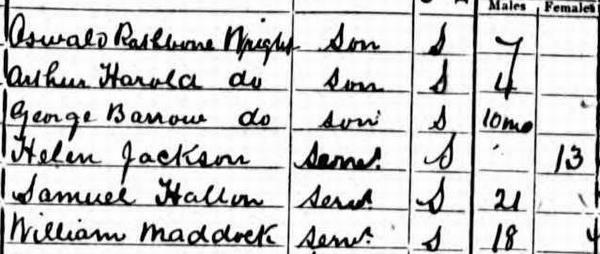 Males Females
Oswald Rathbone Wright son S 7
Arthur Harold do son S 4
George Barrow do son S 10mo
Helen Jackson Servt. S 13
Samuel Hallon Servt S 21
William Maddock Servt. S 18